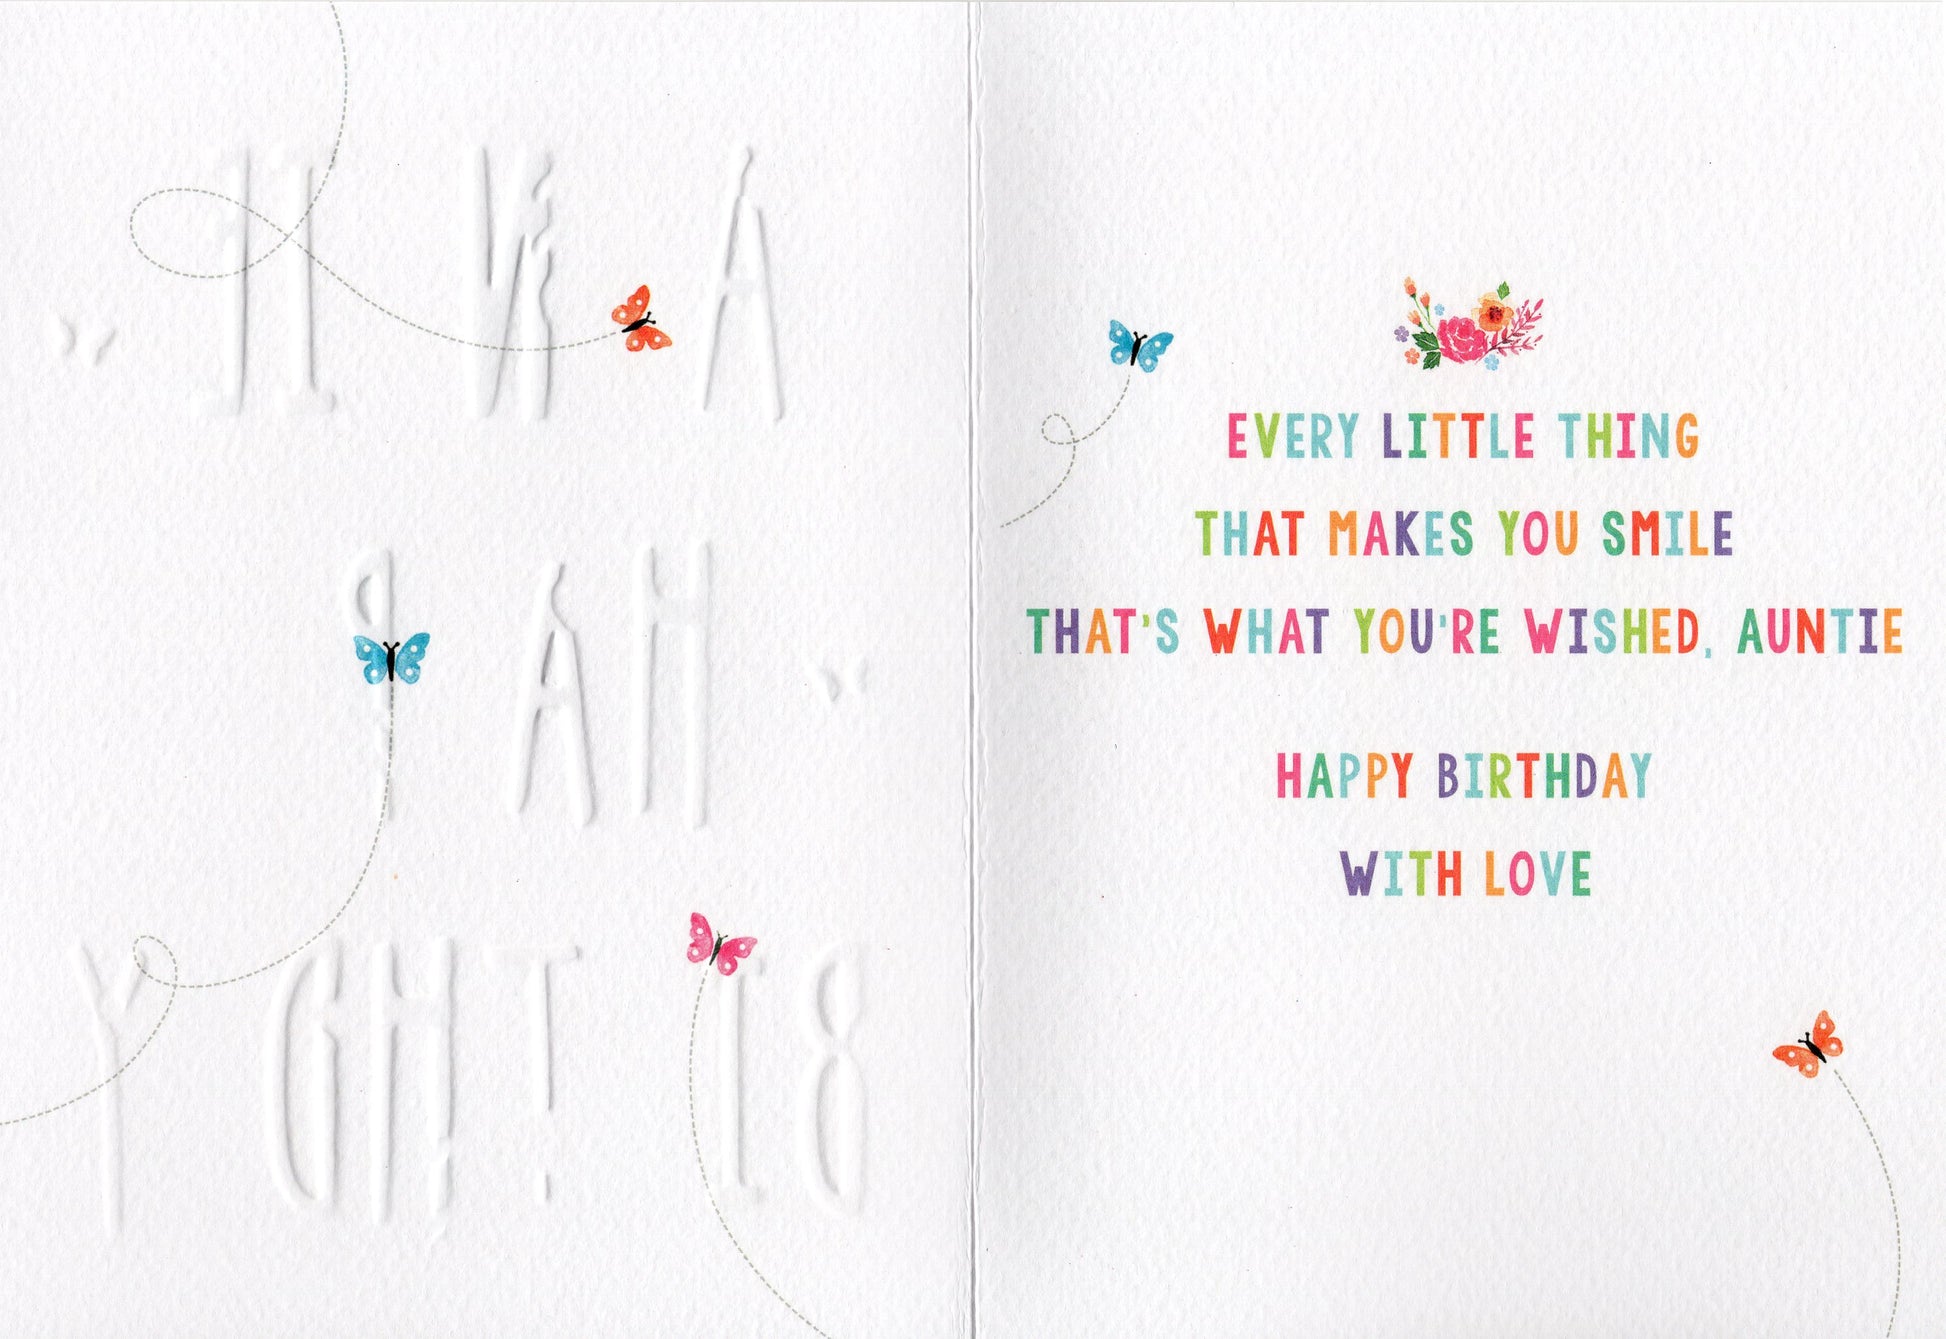 EVERY LITTLE THING
THAT MAKES YOU SMILE
THAT'S WHAT YOU'RE WISHED, AUNTIE
HAPPY BIRTHDAY
WITH LOVE